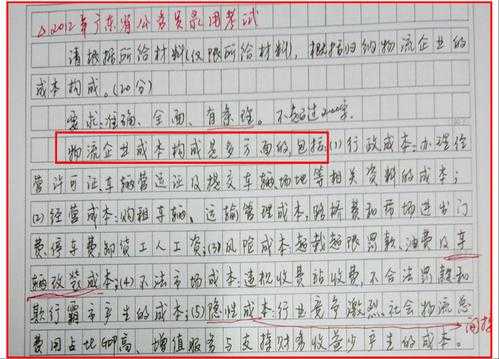 △2012年广东省公务员录用考试
请根据所给材料(仅限所给材料),概括归纳物流企业的
成本构成。(20分)
要求:准确、全面、有条理。不超过200字。
物流企业成本构成是多方面的,包括:(1)行政成本:办理经
营许可证、车辆营运证及提交车辆场地等相关资料的成本;
(2)经营成本:购租车辆、运输管理成本,路桥费和市场进出门
费、停车费、卸货工人工资;(3)风险成本:超载超限罚款、油费及车
辆改装成本;(4)不法市场成本:违规收费站收费,不合法罚款和
欺行霸市产生的成本;(5)隐性成本:行业竞争激烈社会物流总
费用占地GDP高、增值服务与支撑财务收益少产生的成本。
间接